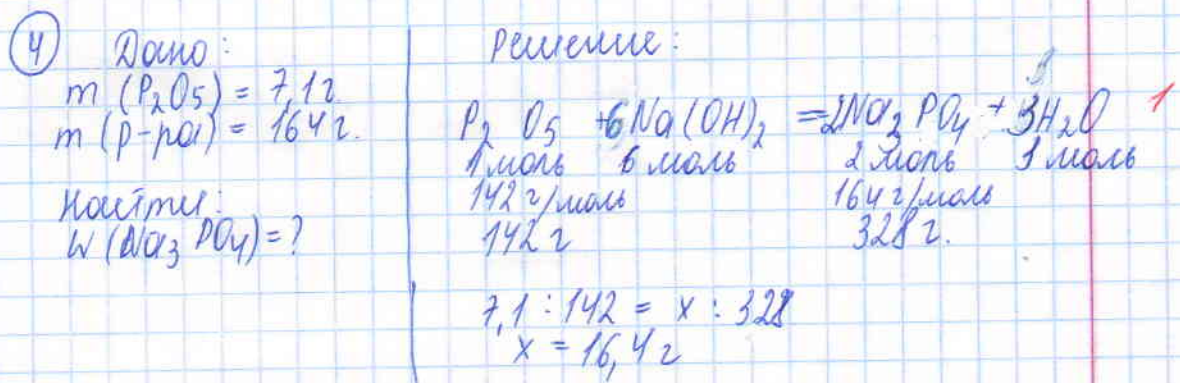 4 Дано:
m (P2O5) = 7,1 г.
m (р-ра) = 164 г.
Найти:
W (Na3PO4) = ?
Решение:
P2O5 + 6Na(OH)2 = 2Na3PO4 + 3H2O 1
1 моль 6 моль 2 моль 3 моль
142 г/моль 164 г/моль
142 г 328 г.
7,1 : 142 = x : 328
x = 16,4 г